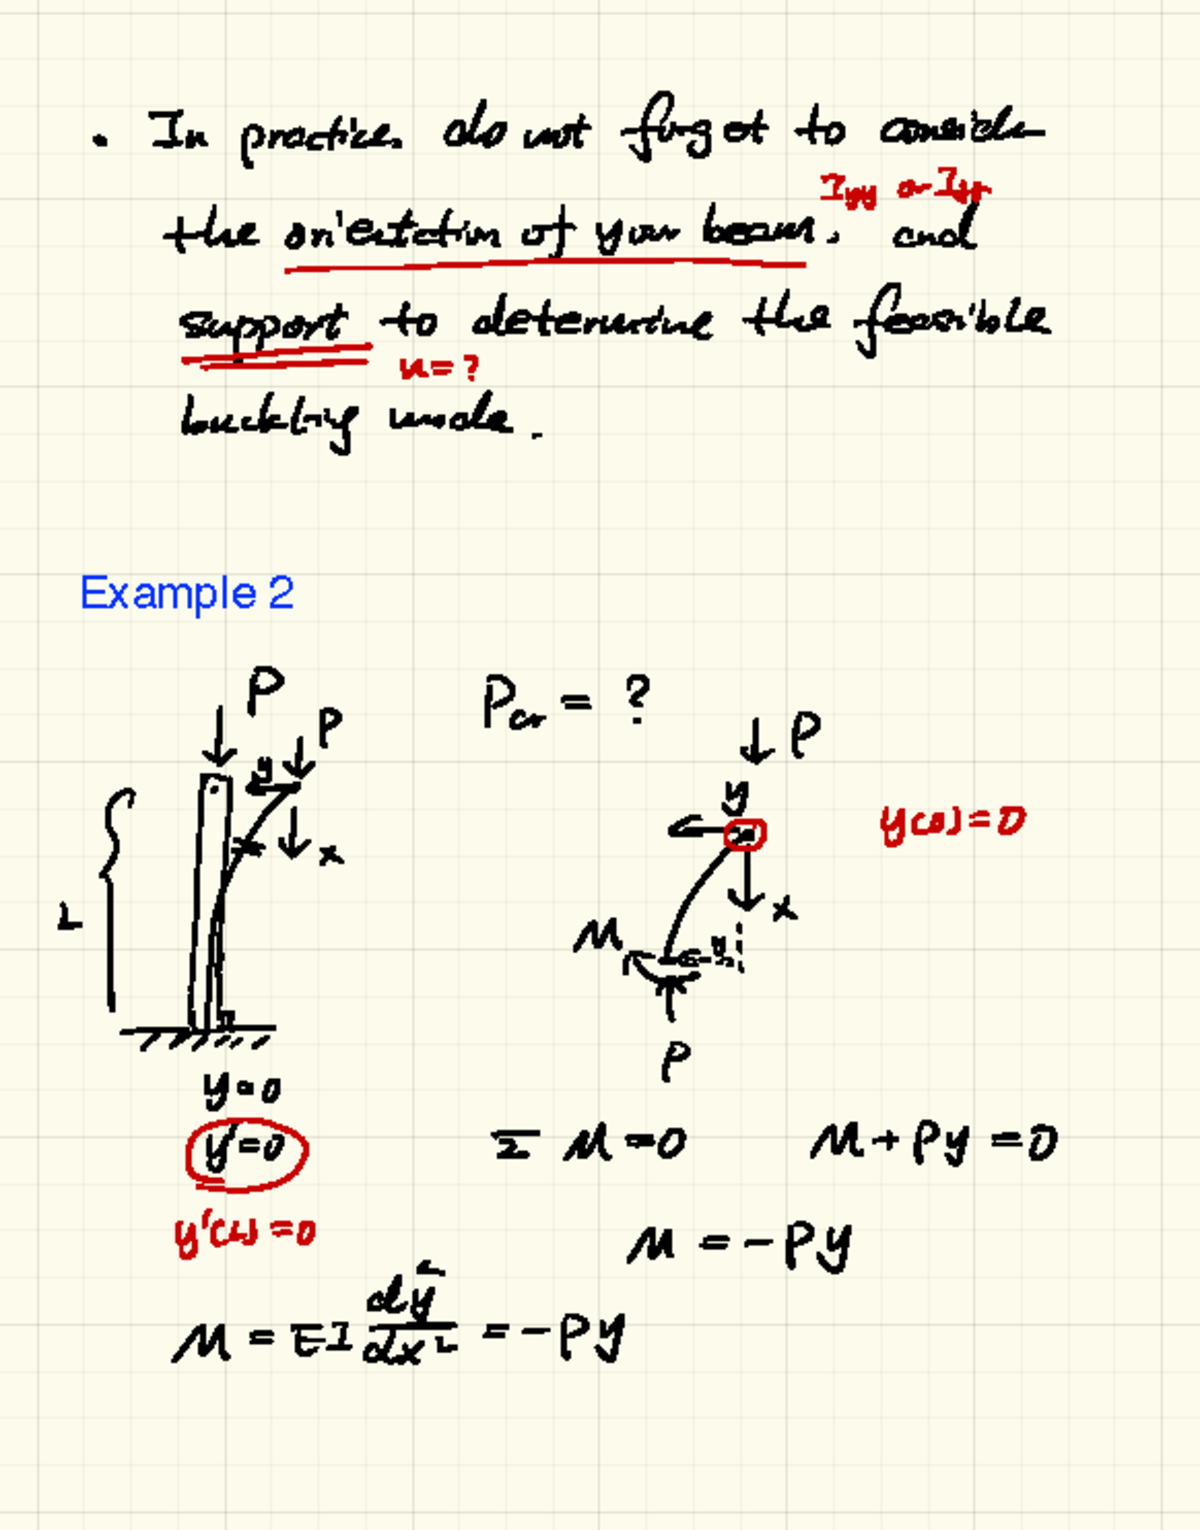 • In practice. do not forget to consider
Iyy or Izz
the orientation of your beam. and
support to determine the feasible
n=?
buckling mode.
Example 2
P
P
Pcr = ?
P
y
x
L
y
y(0)=0
x
M
y
P
y=0
y'=0
Σ M=0
M+Py=0
y'(L)=0
M = -Py
M = EI d²y/dx² = -Py